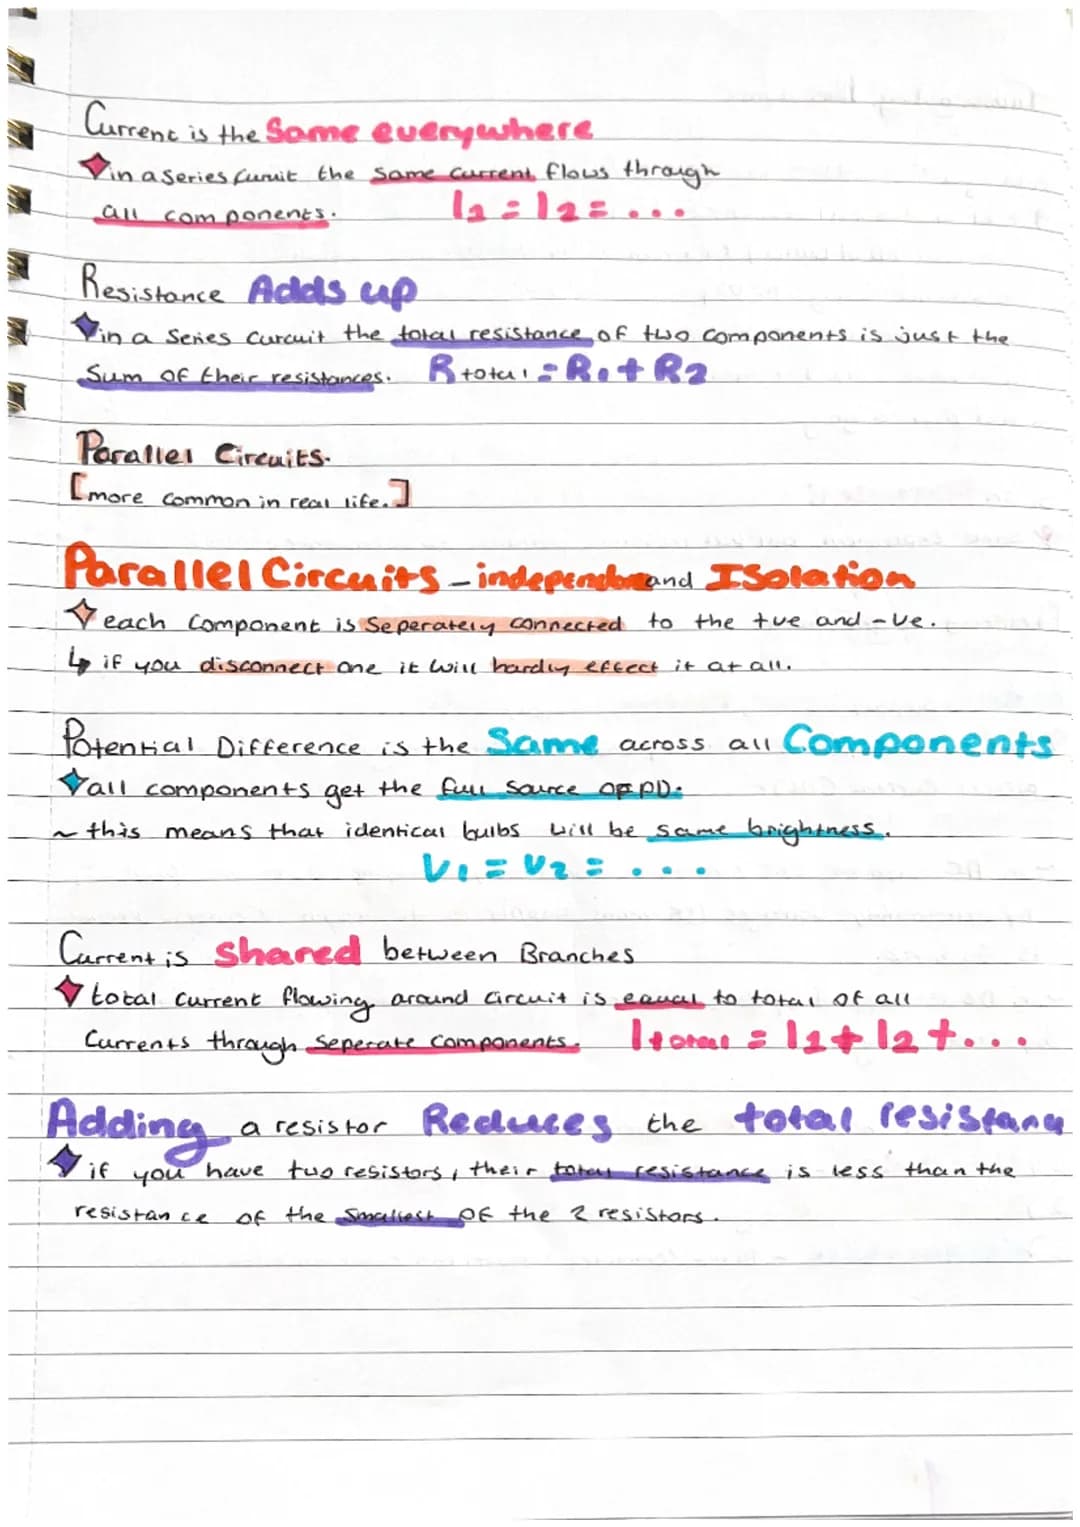 Current is the Same everywhere
in a series curuit the same current flows through
all components. I1 = I2 = ...
Resistance Adds up
in a series curcuit the total resistance of two components is just the
sum of their resistances. Rtotal = R1 + R2
Parallel Circuits.
[more common in real life.]
Parallel Circuits - and Isolation
each component is seperately connected to the +ve and -ve.
↳ if you disconnect one it will hardly effect it at all.
Potential Difference is the Same across all Components
all components get the full source of PD.
~ this means that identical bulbs will be same brightness.
V1 = V2 = ...
Current is shared between Branches
total current flowing around circuit is equal to total of all
currents through seperate components. Itotal = I1 + I2 + ...
Adding a resistor Reduces the total resistance
if you have two resistors, their total resistance is less than the
resistance of the smallest of the 2 resistors.